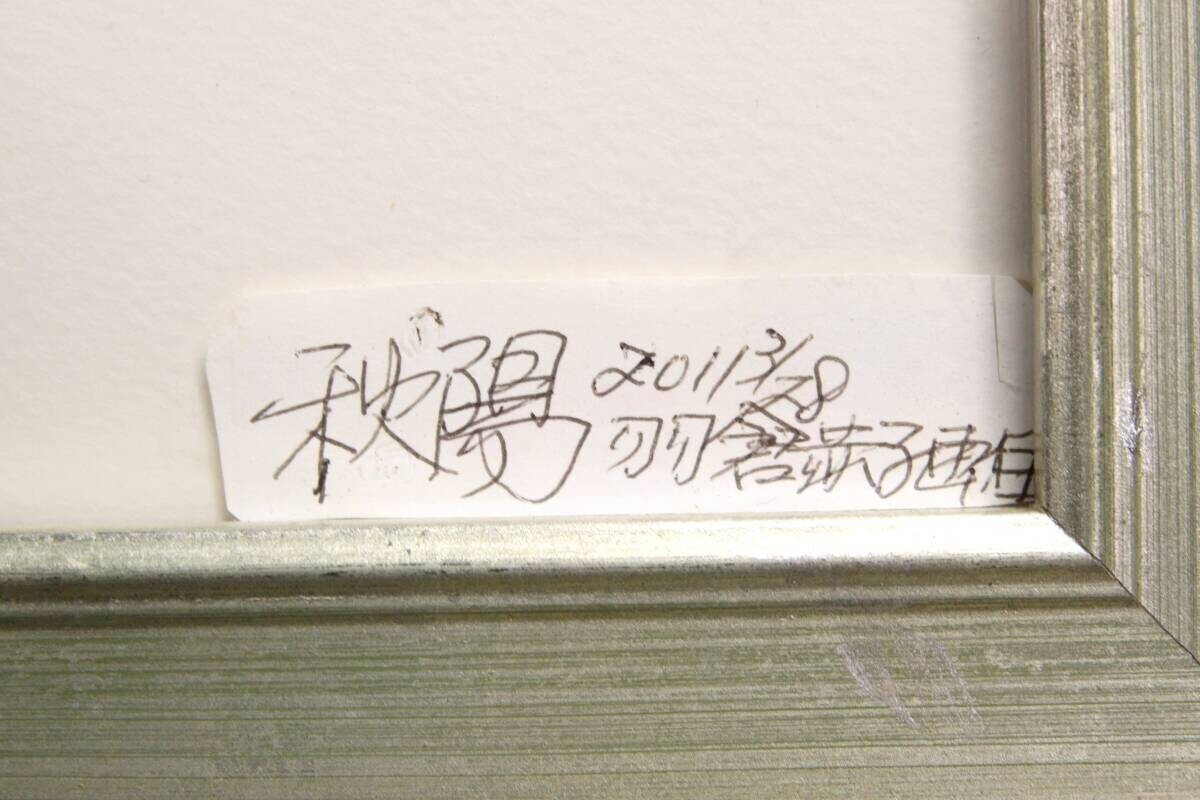 秋陽
2011 3/28
羽倉恭子画伯